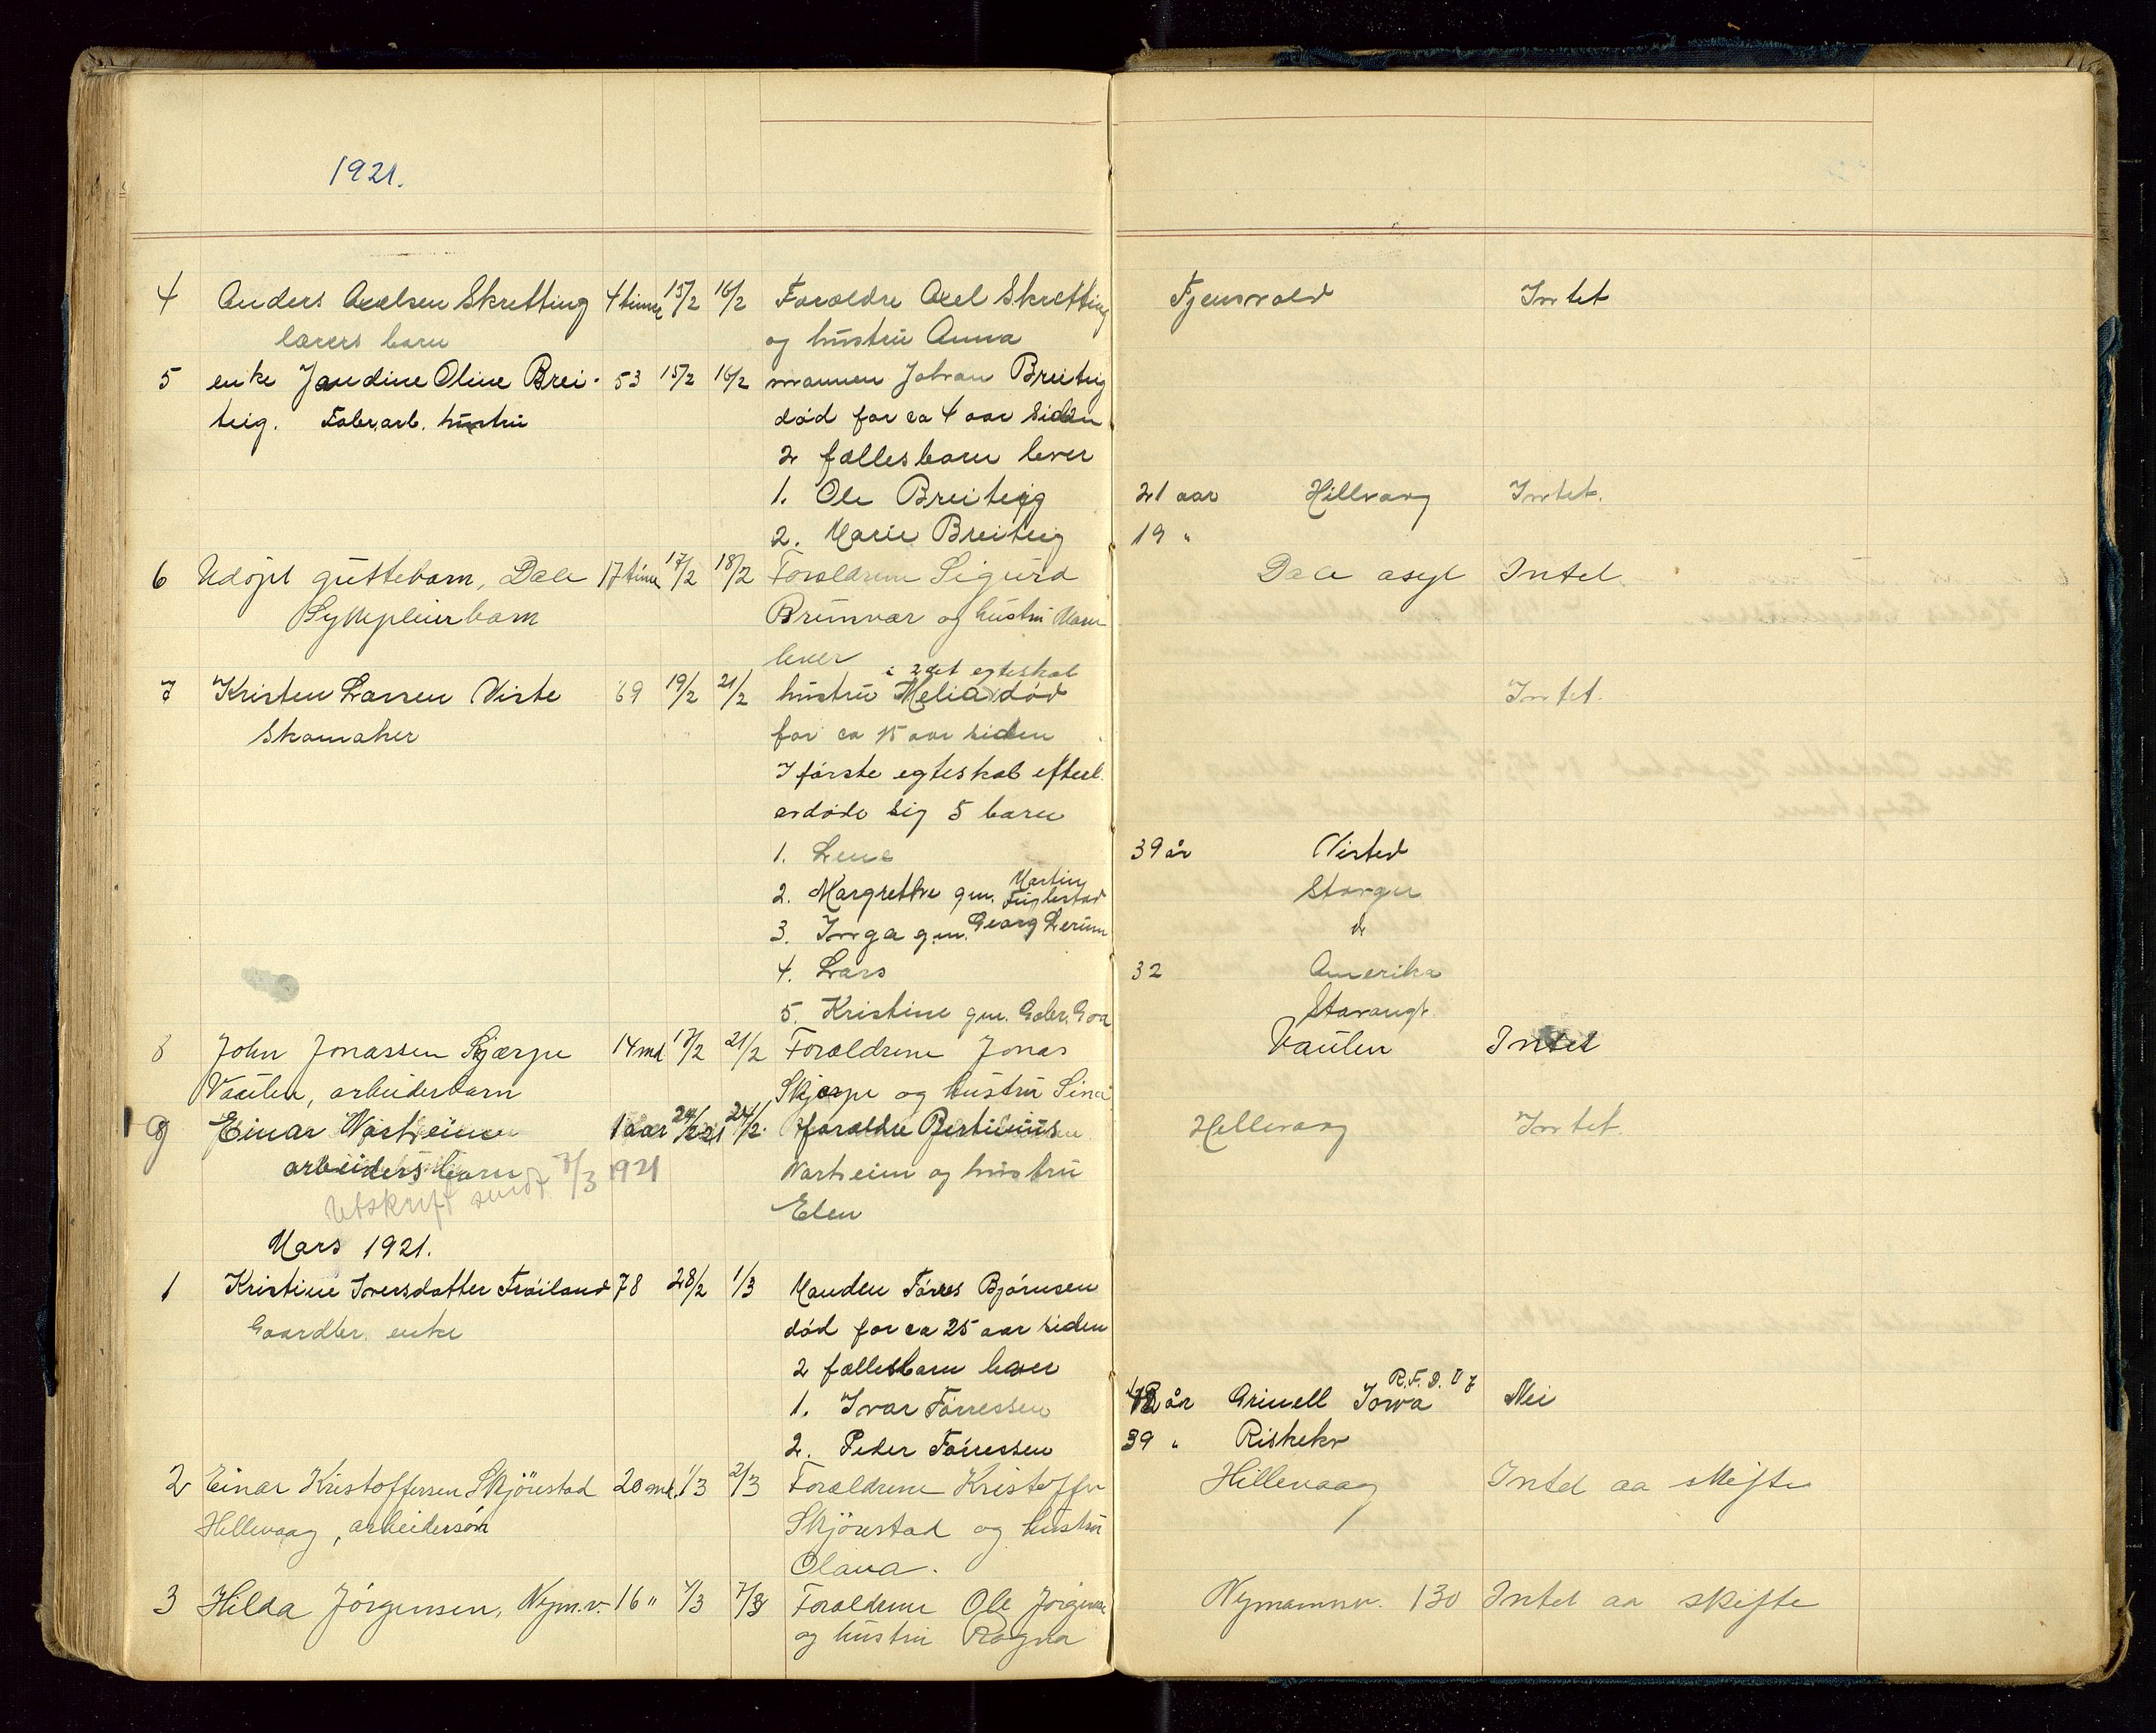 1921.
4 Anders Axelsen Skretting 4 timer 15/2 16/2 Forældre Axel Skretting Fjensvold Intet
lærers barn og hustru Anna
5 enke Jandine Oline Brei- 53 15/2 16/2 mannen Johan Breiteig
teig. Fabr.arb. hustru død for ca 4 aar siden
2 fællesbarn lever
1. Ole Breiteig 21 aar Hillevaag Intet.
2. Marie Breiteig 19 "
6 Udøpt guttebarn, Dale 17 time 17/2 18/2 Forældrene Sigurd Dale asyl Intet.
Sykepleierbarn Brunvær og hustru
lever
i 2det egteskab
7 Kristen Larsen Viste 69 19/2 21/2 hustru Melia død Intet.
Skomaker for ca 15 aar siden
I første egteskab efterl.
avdøde sig 5 barn
1. Lene 39 år Visted
2. Margrethe gm. Martin Fuglestad
3. Inga gm. Georg Lerum
4. Lars 32 Amerika
5. Kristine gm. Gabr. Goa Stavanger
8 John Jonassen Skjærpe 14 md 17/2 21/2 Forældrene Jonas Vaulen Intet
Vaulen, arbeiderbarn Skjærpe og hustru Sina
9 Einar Vartheim 1 aar 24/2 forældre Bertinius Hellevaag Intet.
arbeidersbarn Vartheim og hustru
Utskrift sendt 7/3 1921
Elen
Mars 1921.
1 Kristine Iversdatter Frøiland 78 28/2 1/3 Manden Tørres Bjørnsen
Gaardbr. enke død for ca 25 aar siden
2 fællesbarn lever
1. Ivar Tørressen år Grinell Iowa R.F.D. Nei
2. Peder Tørressen 39 " Riskekv
2 Einar Kristoffersen Skjörestad 20 md. 1/3 2/3 Forældrene Kristoffer Hillevaag Intet aa skifte
Hellevaag, arbeidersøn Skjörestad og hustru
Olava.
3 Hilda Jørgensen, Nym.v. 16 " 4/3 7/3 Forældrene Ole Jørgensen Nymannsv. 130 Intet aa skifte
og hustru Ragna